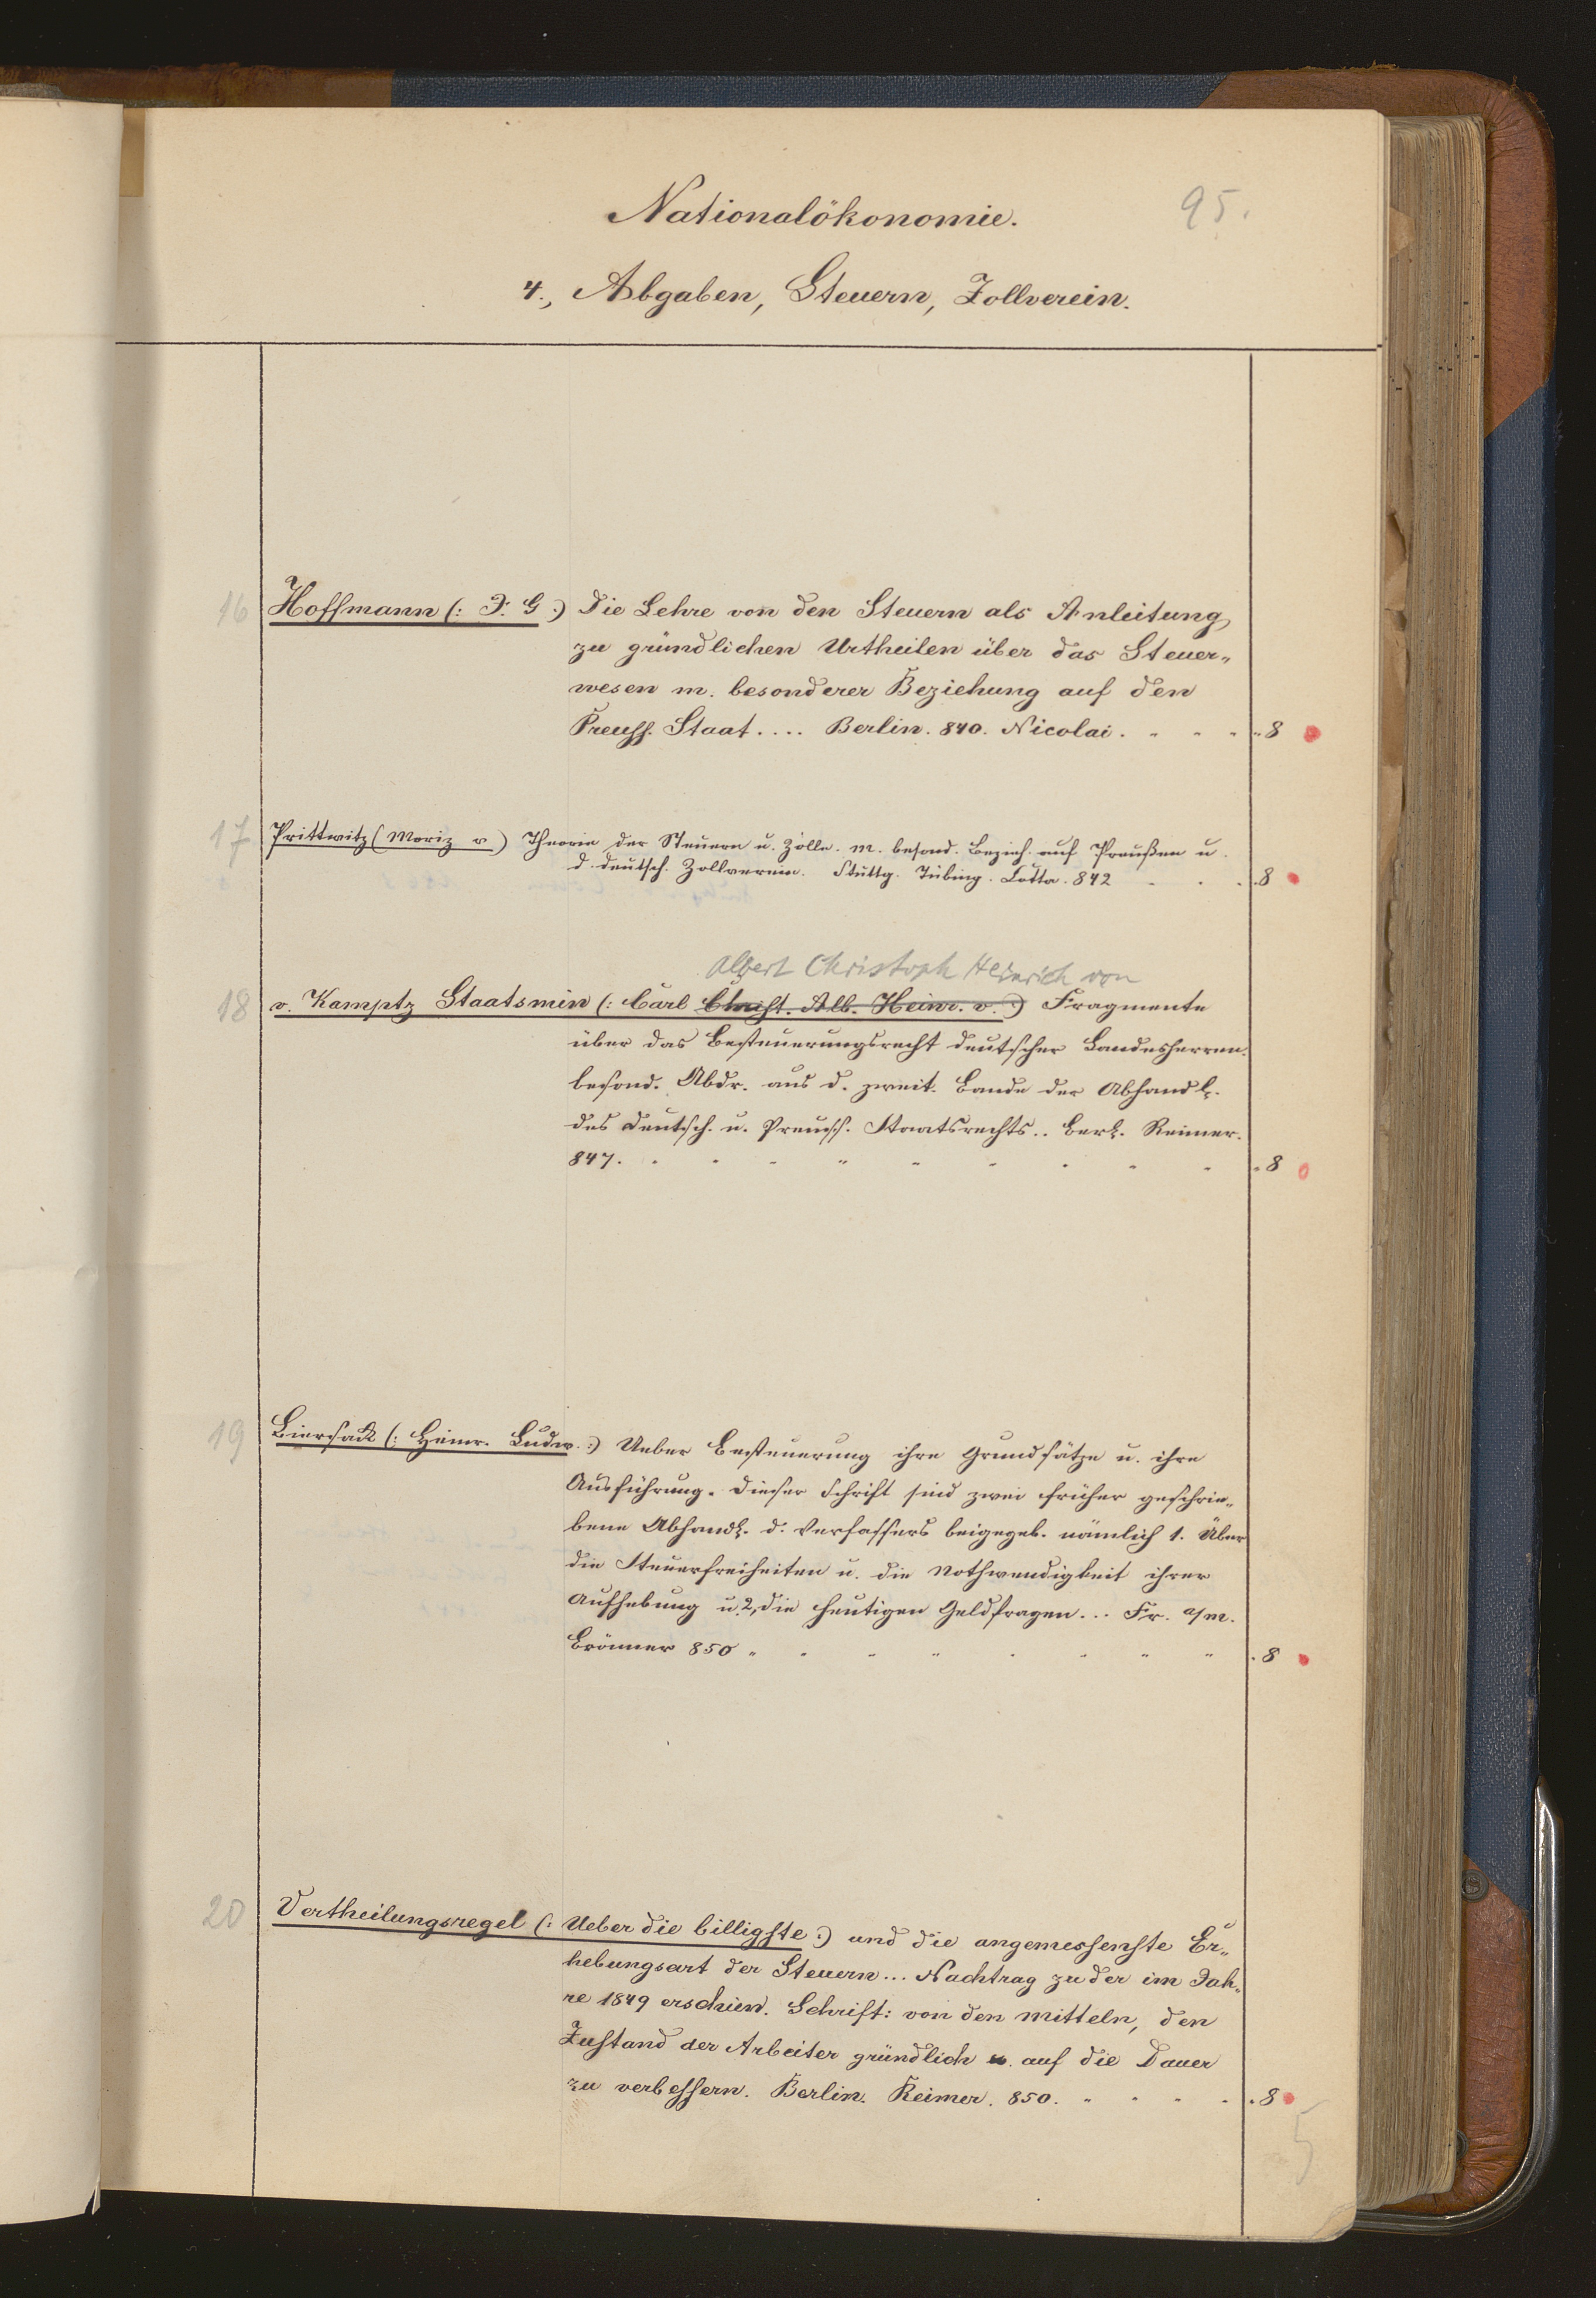 Nationalökonomie.
95.
4., Abgaben, Steuern, Zollverein.
16 Hoffmann (: J. G :) Die Lehre von den Steuern als Anleitung
zu gründlichen Urtheilen über das Steuer„
wesen m. besonderer Beziehung auf den
Preuss. Staat.... Berlin. 840. Nicolai. 8
17 Prittwitz (Moriz v) Theorie der Steuern u. Zölle. m. besond. Bezieh. auf Preußen u.
d. deutsch. Zollverein. Stuttg. Tübing. Cotta. 842 8
Albert Christoph Heinrich von
18 v. Kamptz Staatsmin (: Carl Christ. Alb. Heinr. v. :) Fragmente
über das Besteuerungsrecht deutscher Landesherren.
besond. Abdr. aus d. zweit. Bande der Abhandl.
des deutsch. u. Preuss. Staatsrechts.. Berl. Reimer.
847. 8
19 Biersack (: Heinr. Ludw. :) Ueber Besteuerung ihre Grundsätze u. ihre
Ausführung. Dieser Schrift sind zwei früher geschrie„
bene Abhandl. d. Verfassers beigegeb. nämlich 1. Über
die Steuerfreiheiten u. die Nothwendigkeit ihrer
Aufhebung u. 2, die heutigen Geldfragen... Fr. a/m.
Brönner 850 8
20 Vertheilungsregel (: Ueber die billigste :) und die angemessenste Er„
hebungsart der Steuern... Nachtrag zu der im Jah„
re 1849 erschien. Schrift: von den Mitteln, den
Zustand der Arbeiter gründlich u. auf die Dauer
zu verbessern. Berlin. Reimer. 850. 8
5